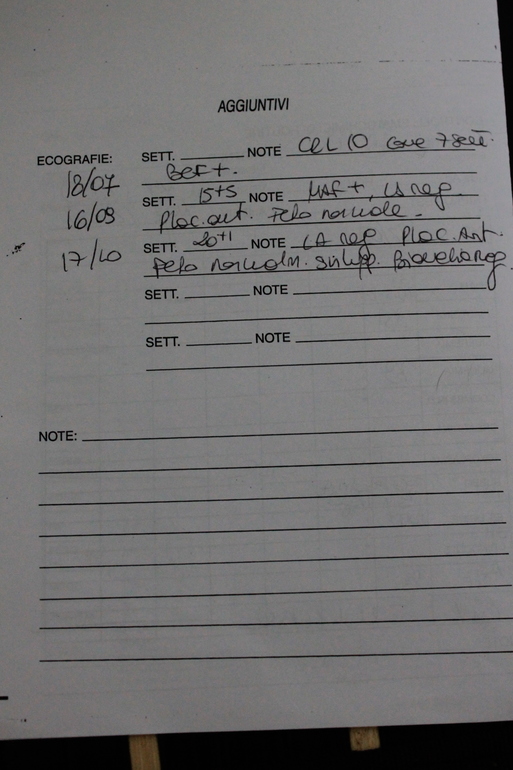 AGGIUNTIVI
ECOGRAFIE: SETT. NOTE CRL 10 come 7 sett.
18/07 BCF+.
SETT. 15+5 NOTE MAF+, LA reg.
16/09 Plac. ant. Feto normale.
SETT. 20+1 NOTE LA reg Plac. Ant.
17/10 Feto normalm. svilupp.
SETT. NOTE
SETT. NOTE
NOTE: